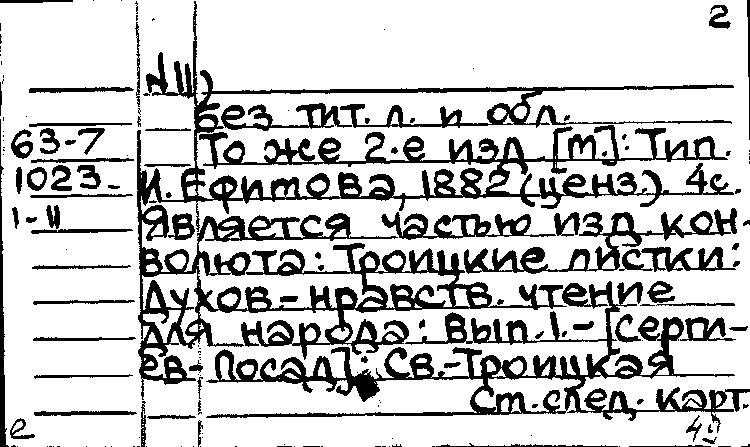 2
N 11)
Без тит. л. и обл.
63-7 То же 2-е изд. [М.]: Тип.
1023- И. Ефимова, 1882 (ценз.). 4с.
1-11 Является частью изд. кон-
волюта: Троицкие листки:
Духов.-нравств. чтение
для народа: Вып. 1.- [Серги-
ев- Посад]: Св.-Троицкая
Ст. след. карт.
е 49